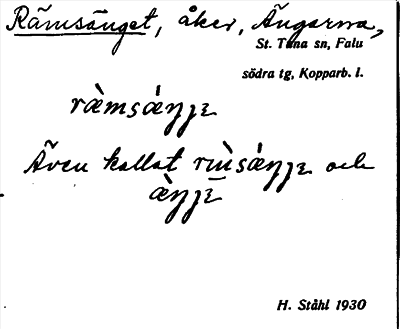 Rämsänget, åker, Ängarna,
St. Tuna sn, Falu
södra tg, Kopparb. l.
rὰ̀msά́ŋŋɛ
Även kallat rmsάŋŋɛ och
ὰŋŋɛ
H. Ståhl 1930